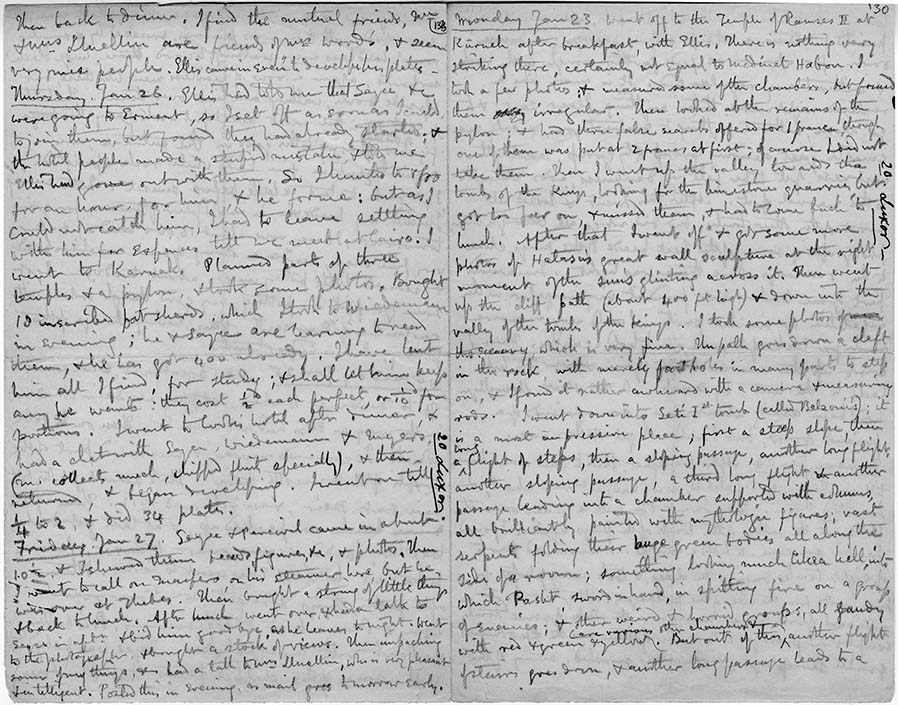 Then back to dinner. I find the mutual friends, Mr
& Miss Lluellin are friends of Mr Words, & seem
very nice people. Ellis came in even'g to develop his plates.
Thursday. Jan 26. Ellis had told me that Sayce & he
were going to Erment, so I set off as soon as I could
to join them, but found they had already started; &
the hotel people made a stupid mistake & told me
Ellis had gone out with them. So I hunted to & fro
for an hour, for him, & he for me: but as I
could not catch him, I had to leave settling
with him for expenses till we meet at Cairo. I
went to Karnak. Planned parts of three
temples & a pylon, & took some photos. Bought
10 inscribed potsherds, which I took to Wiedemann
in evening; he & Sayce are learning to read
them, & he has got 400 already. I have lent
him all I find, for study; & shall let him keep
any he wants: they cost ½ each perfect, or 1/10 for
portions. I went to Cooks hotel after dinner, &
had a chat with Sayce, Wiedemann & Myers.
(M. collects much, chipped flint specially), & then
returned, & began developing. I went on till
¼ to 2; & did 34 plates.
20 Luxor.
Friday. Jan 27. Sayce & Percival came in about
10½, & I showed them heads, figures, &c, & photos. Then
I went to call on Maspero on his steamer here but he
was over at Thebes. Then bought a string of little things
& back to lunch. After lunch went over & had a talk to
Sayce in aft. & bid him good bye, as he leaves tonight. Went
to the photographer & bought a stock of views. Then unpacking
some of my things, & had a talk to Miss Lluellin, who is very pleasant
& intelligent. Posted this in evening, as mail goes tomorrow early.
130
Monday Jan 23. went off to the Temple of Ramses II at
Kurneh after breakfast, with Ellis. There is nothing very
striking there, certainly not equal to Medinet Habou. I
took a few photos & measured some of the chambers, but found
them irregular. Then looked at the remains of the
pylon; & had three false scarabs offered for 1 franc, though
one of them was put at 2 francs at first; of course I did not
take them. Then I went up the valley towards the
tombs of the Kings, looking for the limestone quarries but
got too far on, & missed them, & had to come back to
lunch. After that I went off & got some more
photos of Hatasus great wall sculpture at the right
moment of the suns glinting across it. Then went
up the cliff path (about 400 ft high) & down into the
valley of the tombs of the kings. I took some photos of
the scenery which is very fine. The path goes down a cleft
in the rock with merely footholes in many parts to step
on, & I found it rather awkward with a camera & measuring
rods. I went down into Seti Ist tomb (called Belzoni's); it
is a most impressive place; first a steep slope, then
a long flight of steps, then a sloping passage, another long flight
another sloping passage, a third long flight & another
passage leading into a chamber supported with columns,
all brilliantly painted with mythologic figures; vast
serpents folding their huge green bodies all along the
side of a room; something looking much like a hell, into
which Pasht sword in hand, is spitting fire on a group
of enemies; & other weird & horrid groups, all gaudy
with red & green & yellow. But out of this, another flight
of stairs goes down, & another long passage leads to a
20. Luxor